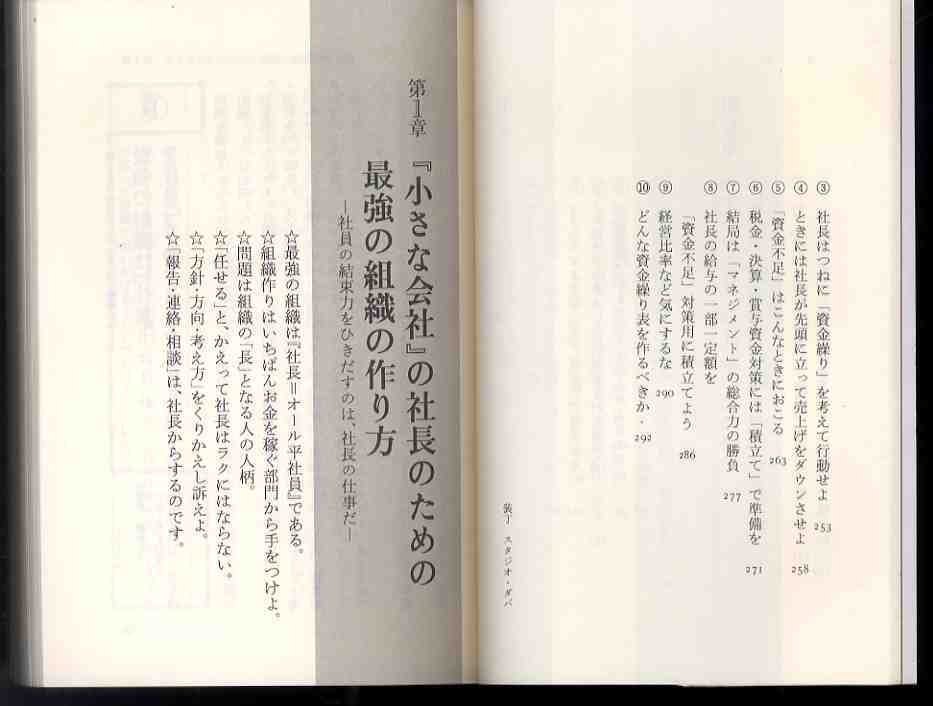 ③ 社長はつねに「資金繰り」を考えて行動せよ 253
④ ときには社長が先頭に立って売上げをダウンさせよ 258
⑤ 「資金不足」はこんなときにおこる 263
⑥ 税金・決算・賞与資金対策には「積立て」で準備を 271
⑦ 結局は「マネジメント」の総合力の勝負 277
⑧ 社長の給与の一部一定額を
「資金不足」対策用に積立てよう 286
⑨ 経営比率など気にするな 290
⑩ どんな資金繰り表を作るべきか・292
装丁 スタジオ・ダバ
第1章
『小さな会社』の社長のための
最強の組織の作り方
―社員の結束力をひきだすのは、社長の仕事だ―
☆最強の組織は『社長＝オール平社員』である。
☆組織作りはいちばんお金を稼ぐ部門から手をつけよ。
☆問題は組織の「長」となる人の人柄。
☆「任せる」と、かえって社長はラクにはならない。
☆「方針・方向・考え方」をくりかえし訴えよ。
☆「報告・連絡・相談」は、社長からするのです。